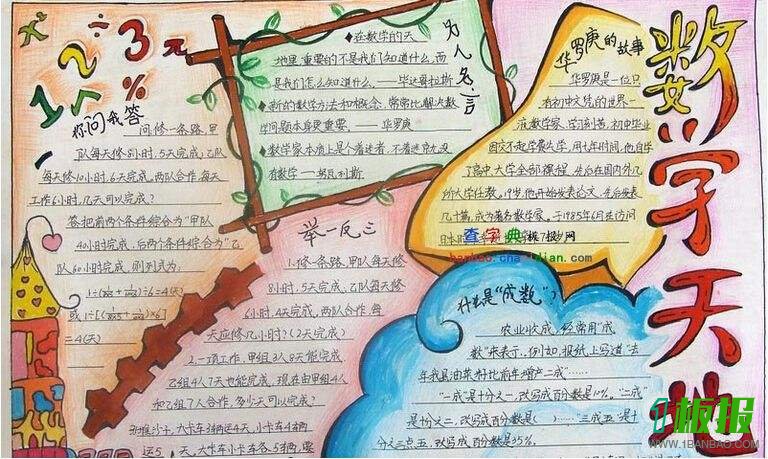 数学天地
x² ÷
1 2 3 元
%
你问我答
问:修一条路,甲
队每天修8小时,5天完成;乙队
每天修10小时,6天完成,两队合作,每天
工作6小时,几天可以完成?
答:把前两个条件综合为"甲队
40小时完成,后两个条件综合为"乙
队60小时完成,则列式为
=4(天)
为人名言
◆在数学的天
地里,重要的不是我们知道什么,而
是我们怎么知道什么。——毕达哥拉斯
◆新的数学方法和概念,常常比解决数
学问题本身更重要。——华罗庚
◆数学家本质上是个着迷者,不着迷就没
有数学——努瓦利斯
华罗庚的故事
华罗庚是一位只
有初中文凭的世界一
流数学家,学习刻苦,初中毕业
因交不起学费失学,用七年时间,他自学
了高中、大学全部课程,先后在国内外几
所大学任教。19岁,他开始发表论文,先后发表
几十篇,成为著名数学家。于1985年6月在访问
日本
查字典 板报网
banbao.chazidian.com
举一反三
1.修一条路,甲队每天修
8小时,5天完成;乙队每天修
6小时,4天完成,两队合作,每
天应修几小时?(2天完成)
2.一项工作,甲组3人8天能完成
乙组4人7天也能完成,现在由甲组4人
和乙组7人合作,多少天可以完成?
大卡车3辆运4天,小卡车4辆
运5天,大卡车小卡车各3辆,要
什么是"成数"?
农业收成,经常用"成
数"来表示,例如,报纸上写道:"去
年我县油菜籽比前年增产二成"……
"一成"是十分之一,改写成百分数是10%,"二成"
是十分之二,改写成百分数是( )……"三成五"是十
分之三点五,改写成百分数是35%。
1板报
WWW.1BANBAO.COM